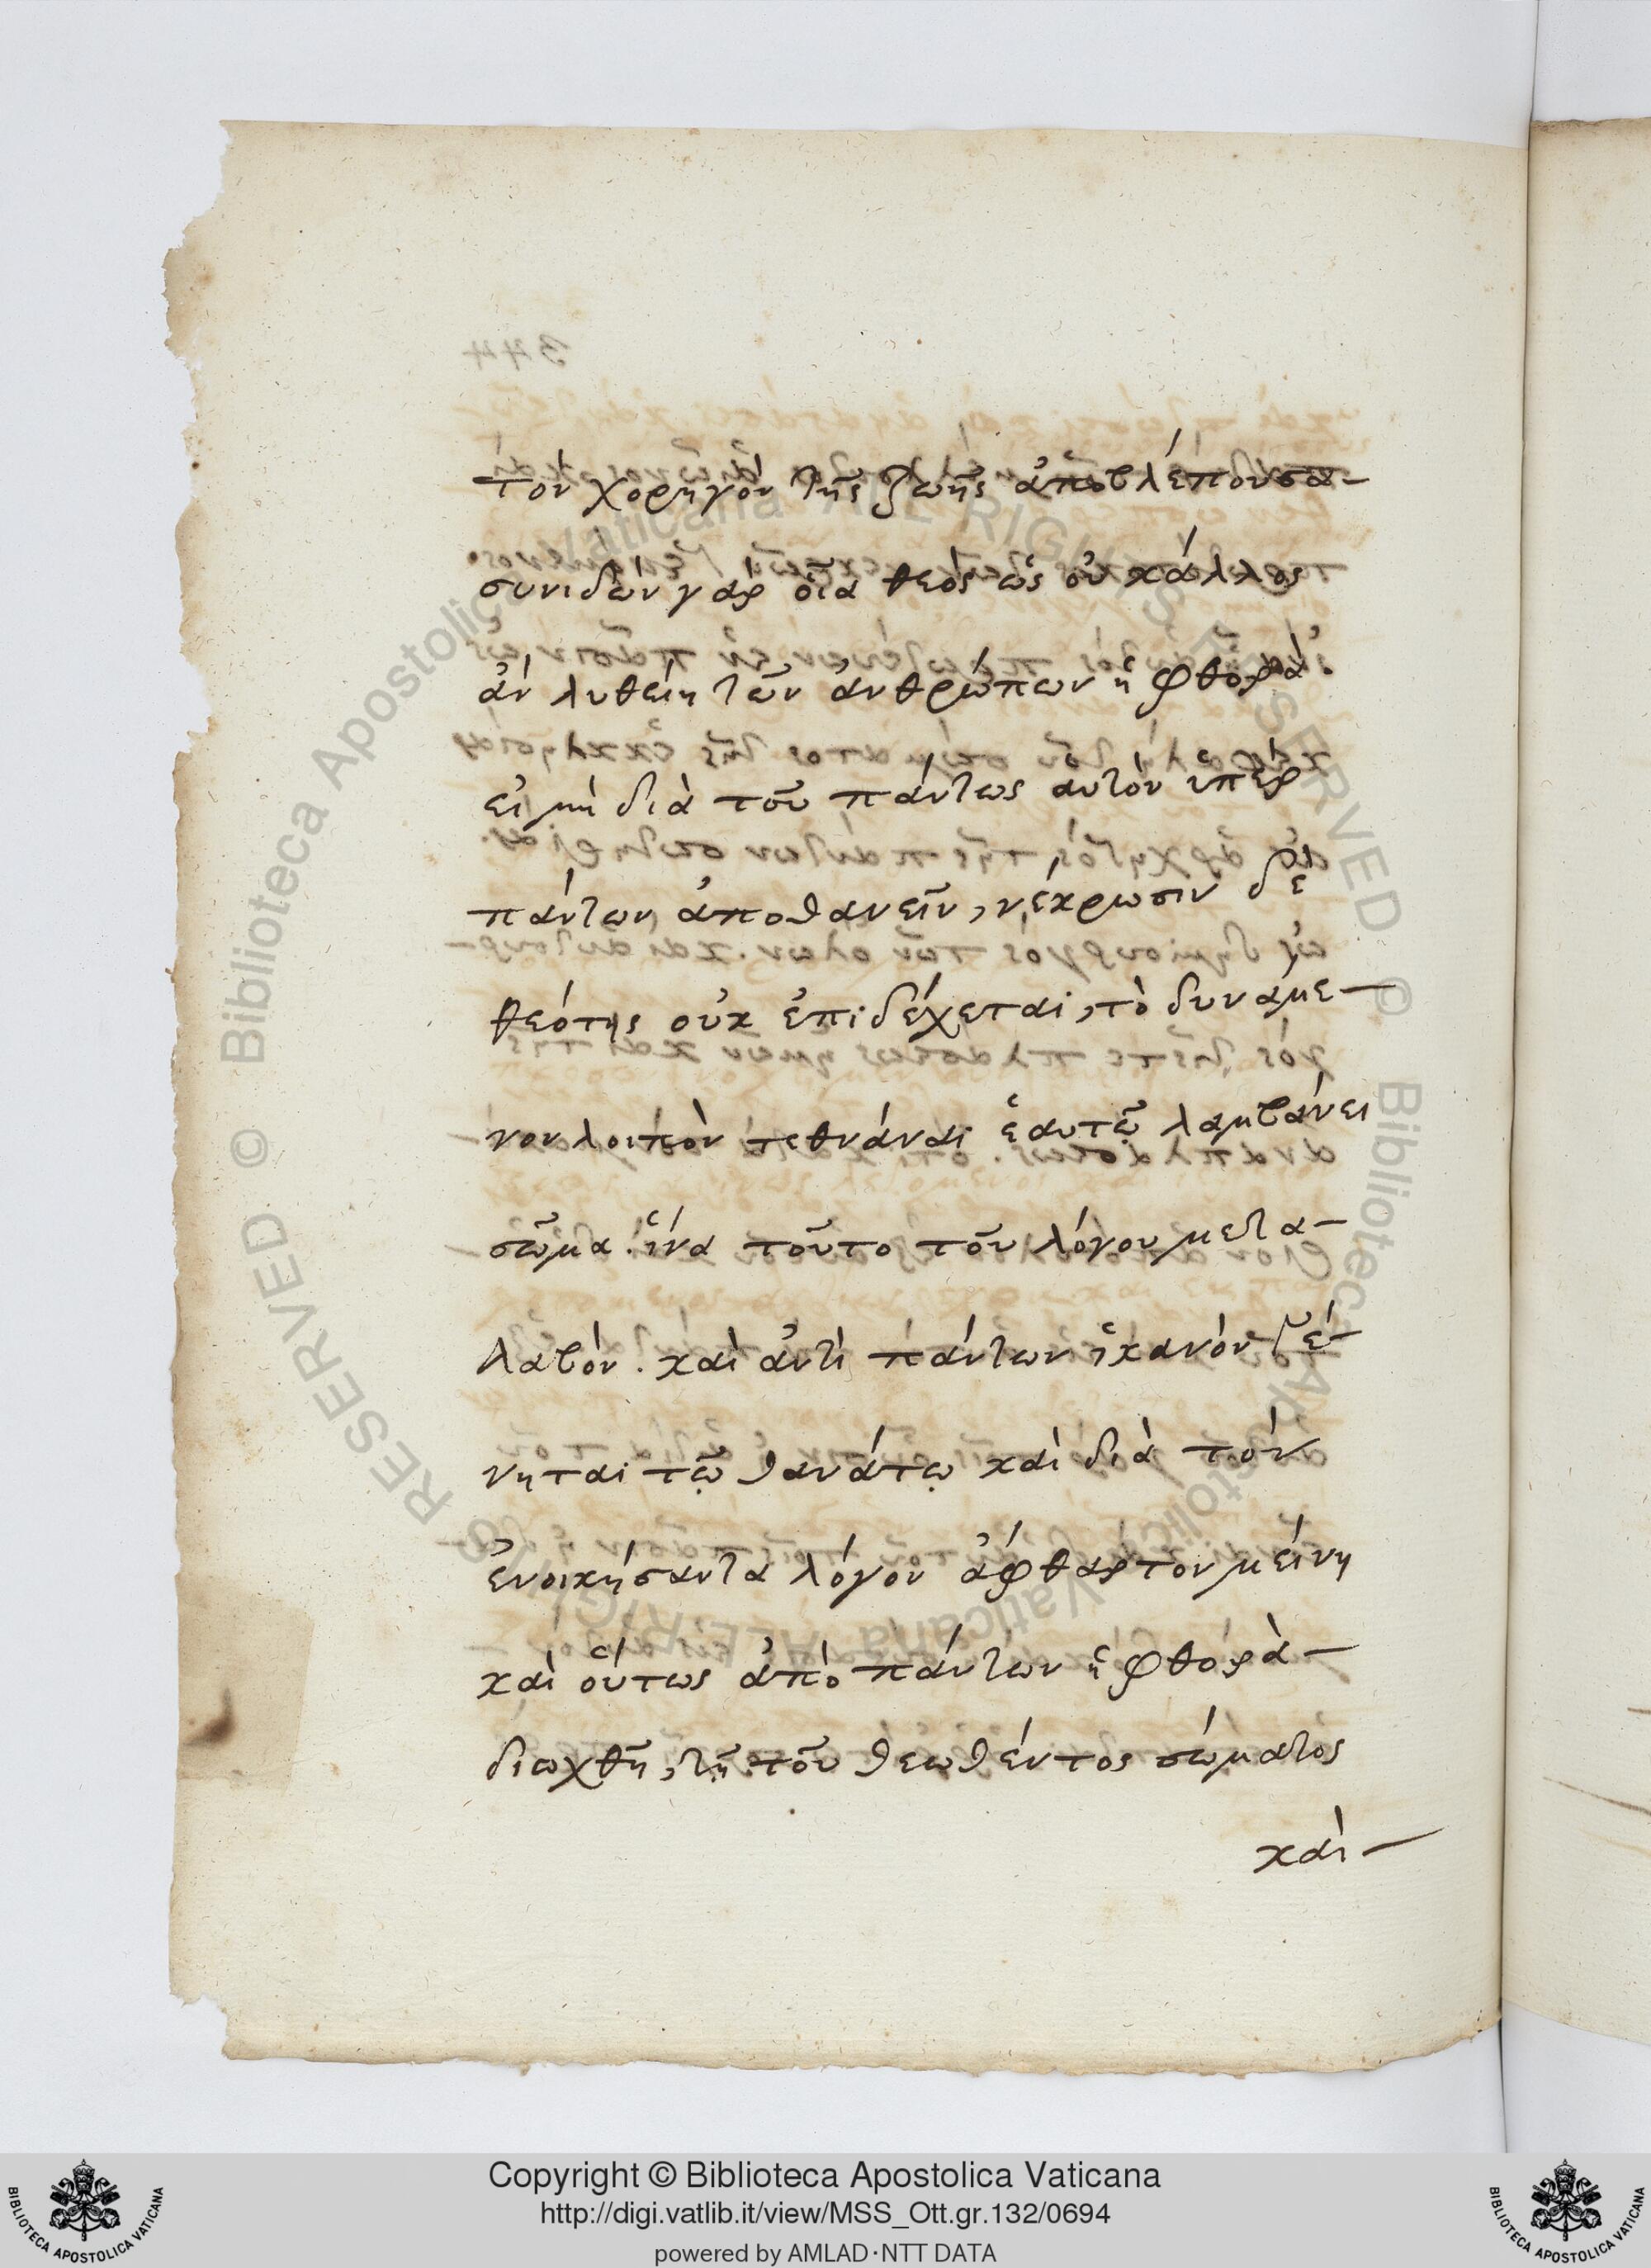 τὸν χορηγὸν τῆς ζωῆς ἀποβλέπουσα-
συνιδὼν γὰρ οἷα θεὸς ὡς οὐκ ἄλλως
ἂν λυθείη τῶν ἀνθρώπων ἡ φθορά.
εἰ μὴ διὰ τοῦ πάντως αὐτὸν ὑπὲρ
πάντων ἀποθανεῖν, νέκρωσιν δὲ
θεότης οὐκ ἐπιδέχεται, τὸ δυνάμε-
νον λοιπὸν τεθνάναι ἑαυτῷ λαμβάνει
σῶμα. ἵνα τοῦτο τοῦ λόγου μετα-
λαβὸν. καὶ ἀντὶ πάντων ἱκανὸν γέ-
νηται τῷ θανάτῳ καὶ διὰ τὸν
ἐνοικήσαντα λόγον ἄφθαρτον μείνη
καὶ οὕτως ἀπὸ πάντων ἡ φθορὰ-
διωχθῆ, τῇ τοῦ θεωθέντος σώματος
καὶ-
© Biblioteca Apostolica Vaticana ALL RIGHTS RESERVED © Biblioteca Apostolica Vaticana ALL RIGHTS RESERVED
BIBLIOTECA APOSTOLICA VATICANA
Copyright © Biblioteca Apostolica Vaticana
http://digi.vatlib.it/view/MSS_Ott.gr.132/0694
powered by AMLAD·NTT DATA
BIBLIOTECA APOSTOLICA VATICANA